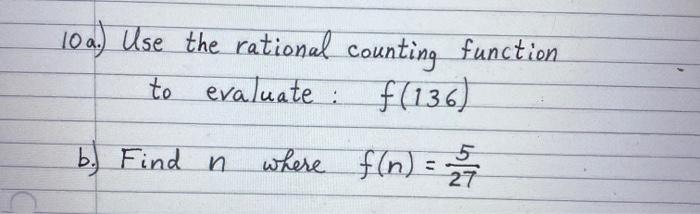 10 a.) Use the rational counting function
to evaluate : f(136)
b.) Find n where f(n) = 5/27